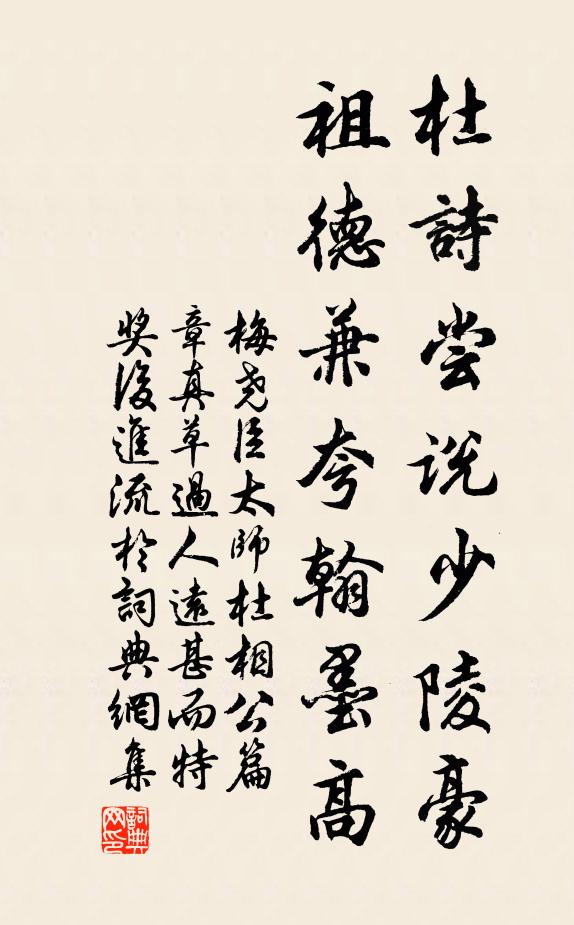 杜詩尝說少陵豪
祖德兼夸翰墨高
梅尧臣太師杜相公篇
章真草過人遠甚而特
奖後進流於詞典網集
詞典网印